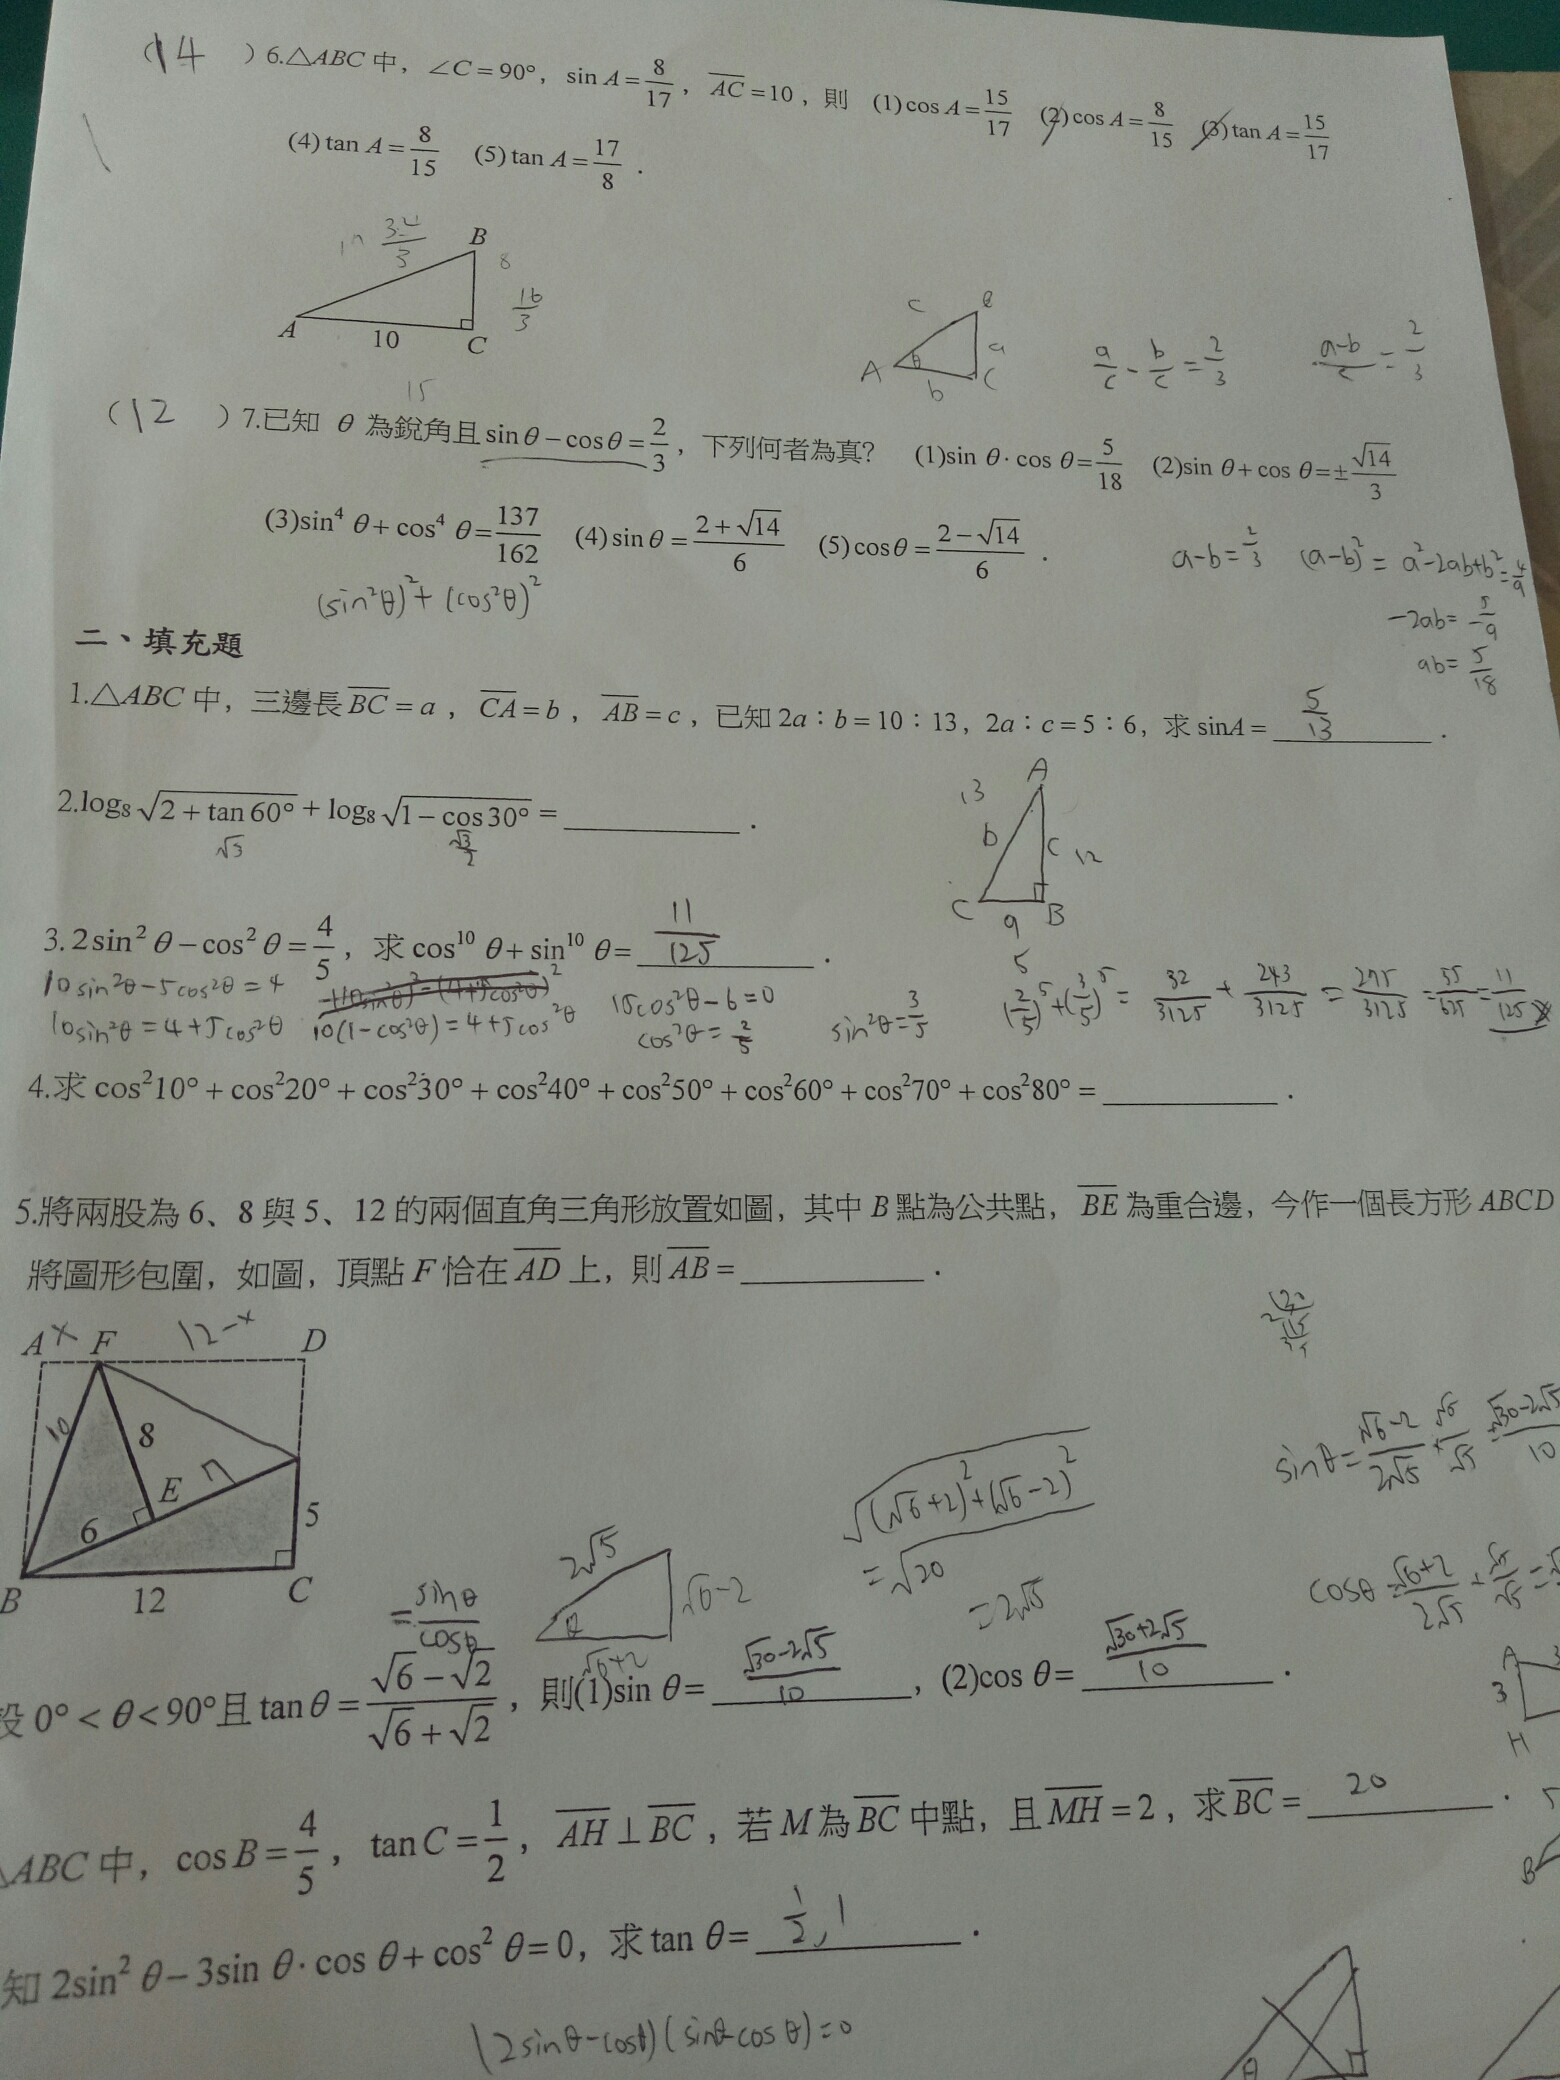 (14 ) 6.△ABC 中，∠C=90°，sin A=8/17，AC=10，則 (1)cos A=15/17 (2)cos A=8/15 (3)tan A=15/17
(4)tan A=8/15 (5)tan A=17/8．
34/3
B
8
16/3
A
10
C
15
c
a
A
θ
b
C
a/c - b/c = 2/3
a-b/c = 2/3
(12 ) 7.已知 θ 為銳角且 sin θ−cos θ=2/3，下列何者為真？ (1)sin θ·cos θ=5/18 (2)sin θ+cos θ=±√14/3
(3)sin⁴ θ+cos⁴ θ=137/162 (4)sin θ=(2+√14)/6 (5)cos θ=(2−√14)/6．
a-b=2/3 (a-b)²=a²-2ab+b²=4/9
-2ab=-5/9
ab=5/18
(sin²θ)²+(cos²θ)²
二、填充題
1.△ABC 中，三邊長 BC=a，CA=b，AB=c，已知 2a：b=10：13，2a：c=5：6，求 sinA= 5/13．
2.log₈√(2+tan 60°)+log₈√(1−cos 30°)=________．
√3
√3/2
A
13
b
c
12
C
a
B
5
3. 2 sin² θ−cos² θ=4/5，求 cos¹⁰ θ+sin¹⁰ θ= 11/125．
10sin²θ-5cos²θ=4
10sin²θ=4+5cos²θ
10(1-cos²θ)=4+5cos²θ
15cos²θ-6=0
cos²θ=2/5
sin²θ=3/5
(2/5)⁵+(3/5)⁵=32/3125+243/3125=275/3125=55/625=11/125
4.求 cos²10°+cos²20°+cos²30°+cos²40°+cos²50°+cos²60°+cos²70°+cos²80°=________．
5.將兩股為 6、8 與 5、12 的兩個直角三角形放置如圖，其中 B 點為公共點，BE 為重合邊，今作一個長方形 ABCD
將圖形包圍，如圖，頂點 F 恰在 AD 上，則 AB=________．
A x F 12-x D
10
8
E
6
5
B
12
C
√((√6+2)²+(√6-2)²)
=√20
=2√5
sinθ=√6-2/2√5 × √5/√5 = √30-2√5/10
cosθ=√6+2/2√5 × √5/√5 =
=sinθ/cosθ
2√5
θ
√6-2
√6+2
設 0°<θ<90°且 tan θ=(√6−√2)/(√6+√2)，則(1)sin θ= √30-2√5/10，(2)cos θ= √30+2√5/10．
A
3
H
△ABC 中，cos B=4/5，tan C=1/2，AH⊥BC，若 M 為 BC 中點，且 MH=2，求 BC= 20．
5
B
知 2sin² θ−3sin θ·cos θ+cos² θ=0，求 tan θ= 1/2, 1．
(2sinθ-cosθ)(sinθ-cosθ)=0
θ